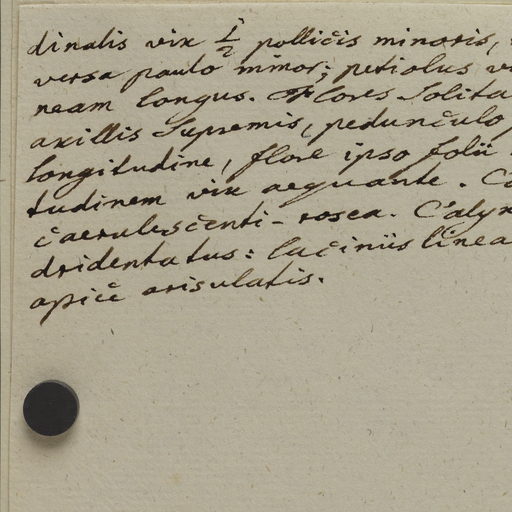 dinalis vix 1/2 pollicis minoris,
versa paulo minor; petiolus
neam longus. Flores Solita
axillis Supremis, pedunculo
longitudine, flore ipso folii
tudinem vix aequante. Co
caerulescenti-rosea. Calyx
dridentatus: laciniis linea
apice arisulatis.